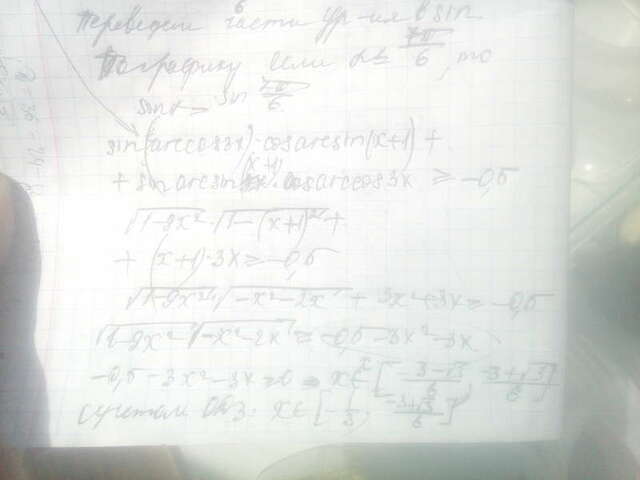 Переведем части ур-ия в sin
По графику если α ≤ 7π/6, то
sinα ≥ sin 7π/6
sin(arccos3x)·cosarcsin(x+1)+
+ sin arcsin (x+1)·cosarccos3x ≥ -0,5
√1-9x²·√1-(x+1)²+
+ (x+1)·3x ≥ -0,5
√1-9x² √-x²-2x + 3x²+3x ≥ -0,5
√1-9x² √-x²-2x ≥ -0,5-3x²-3x
-0,5-3x²-3x ≥ 0 x∈[-3-√3/6; -3+√3/6]
С учетом ОДЗ: x∈[-1/3; -3+√3/6]